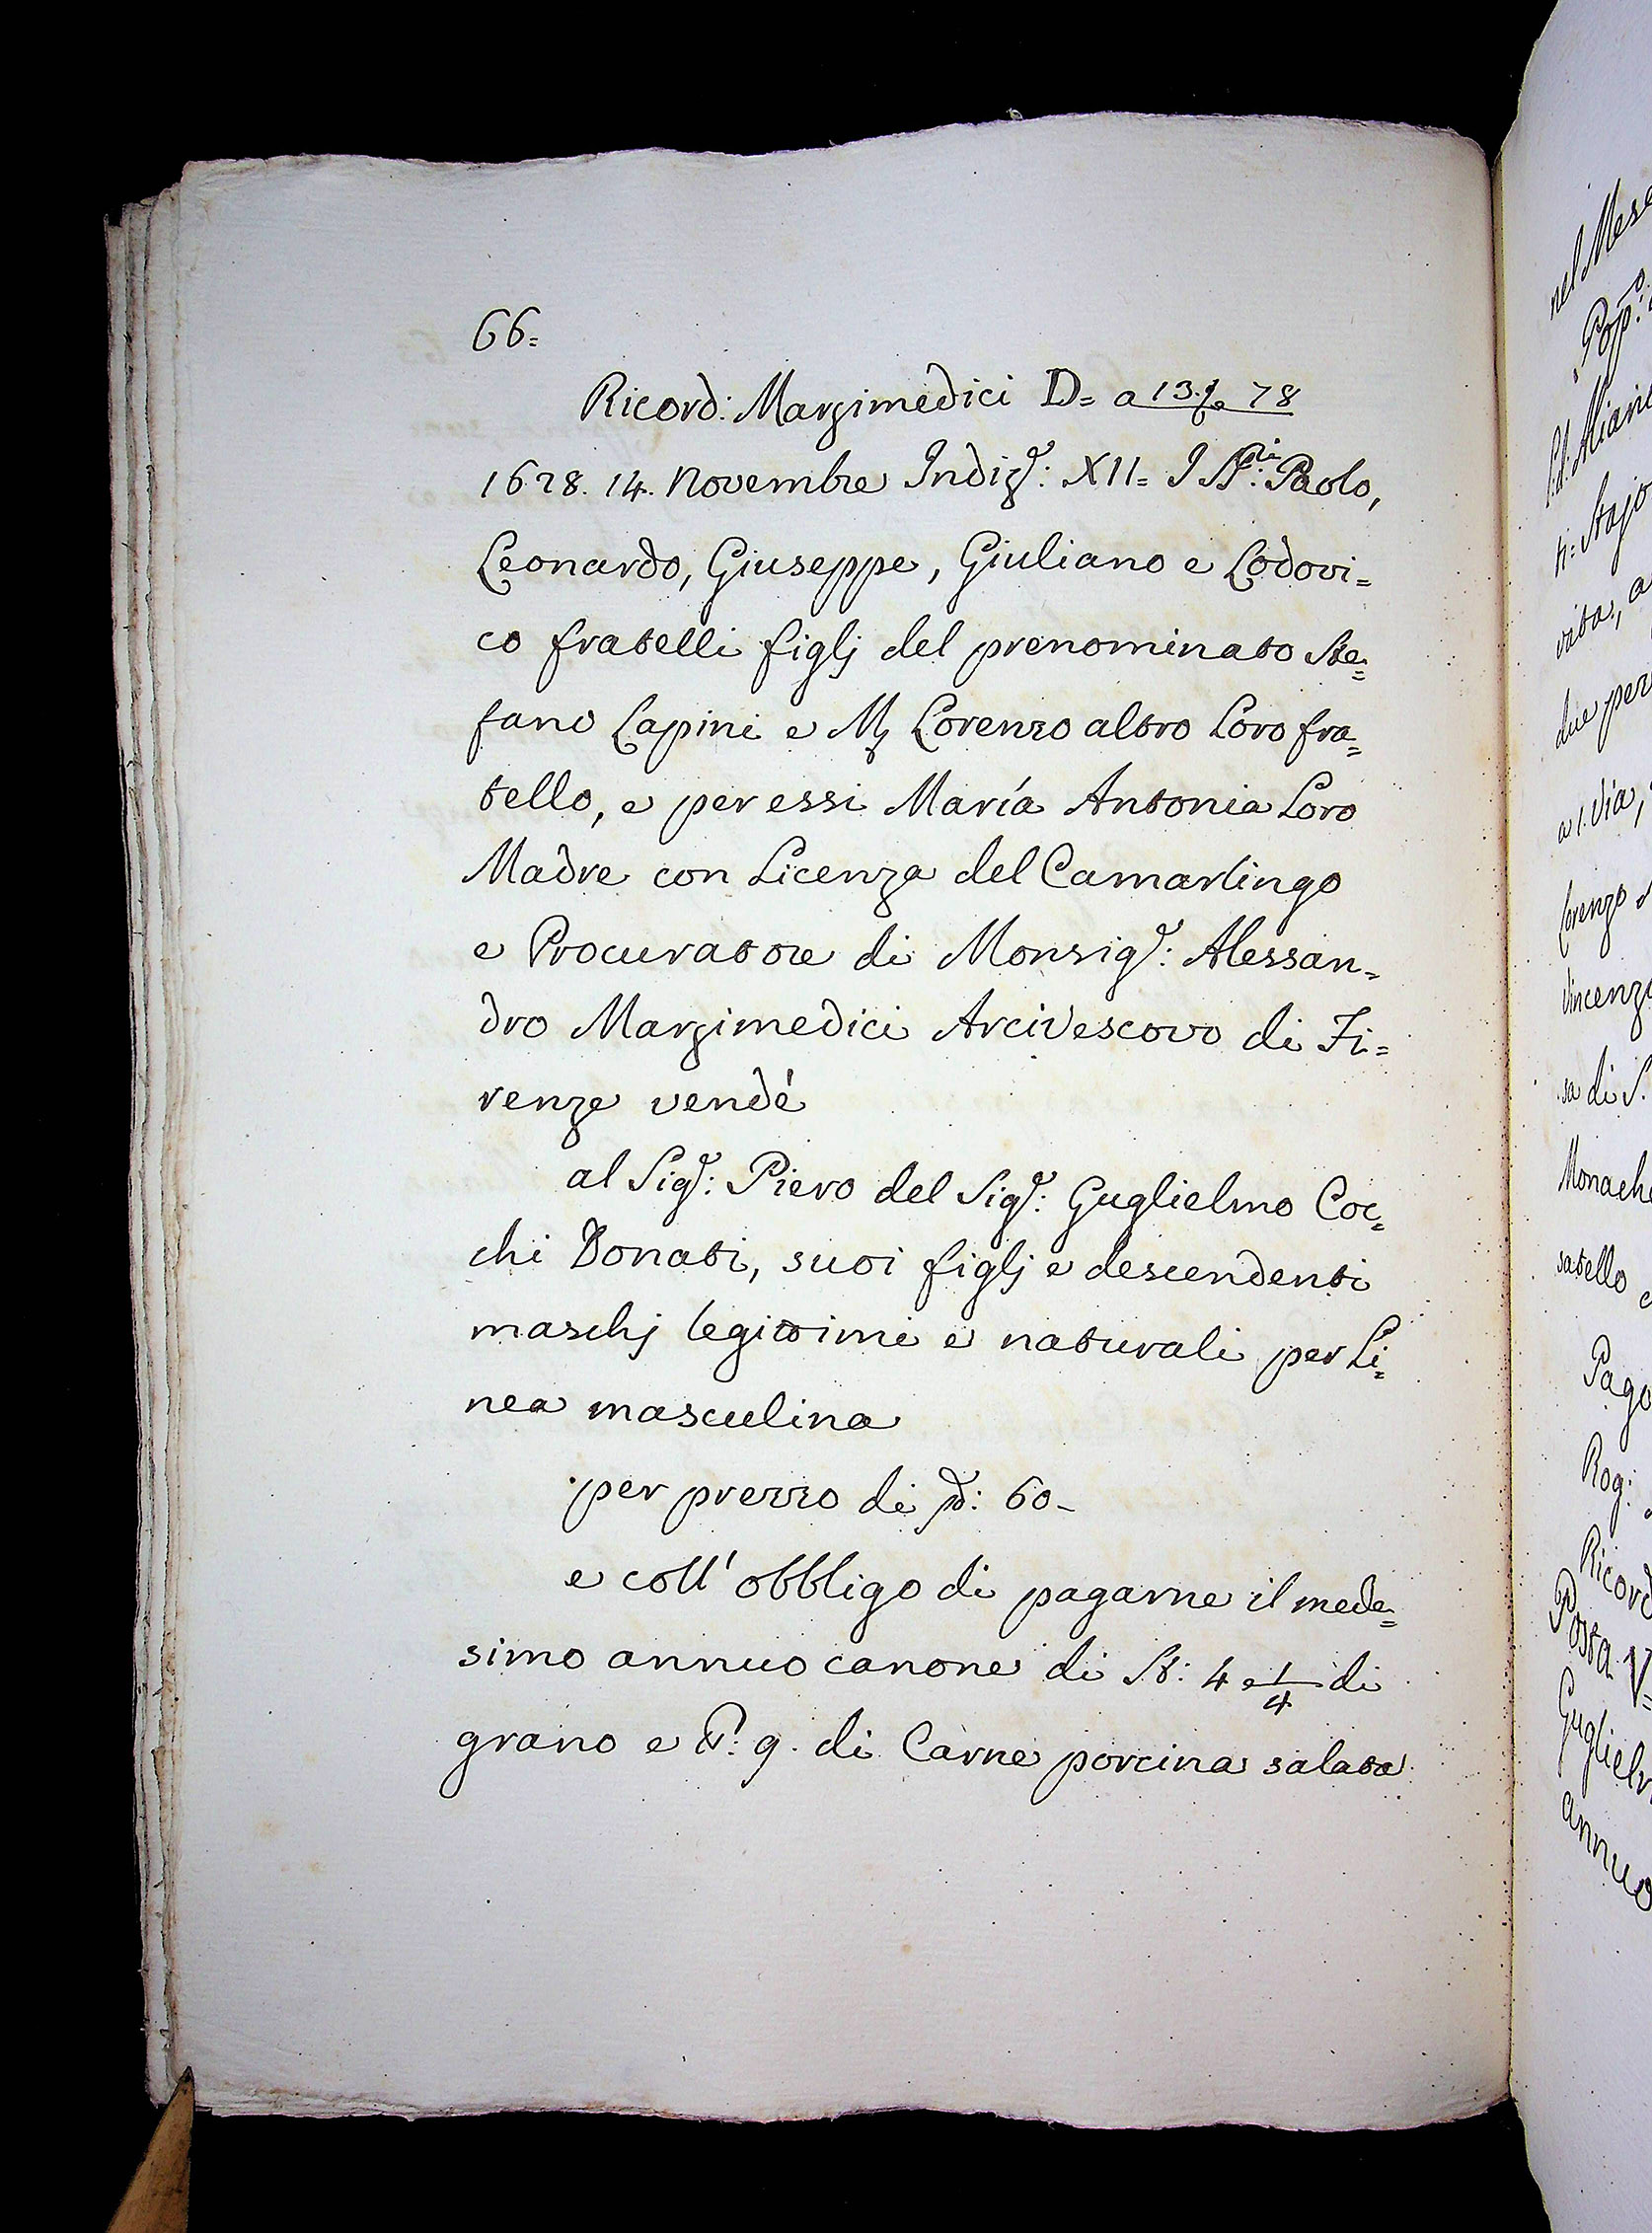 66=
Ricord: Marzimedici D= a 13. f. 78
1628. 14. Novembre Indiz: XII= I SS.ri Paolo,
Leonardo, Giuseppe, Giuliano e Lodovi=
co fratelli figlj del prenominato Ste=
fano Lapini e M Lorenzo altro Loro fra=
tello, e per essi María Antonia Loro
Madre con Licenza del Camarlingo
e Procuratore di Monsig: Alessan=
dro Marzimedici Arcivescovo di Fi=
renze vendé
al Sig: Piero del Sig: Guglielmo Coc=
chi Donati, suoi figlj e descendenti
maschj legittimi e naturali per Li=
nea masculina
per prezzo di 60-
e coll' obbligo di pagarne il mede=
simo annuo canone di St: 4 e 1/4 di
grano e P: 9. di Carne porcina salata
nel
Pop:o
Stajo
vita, a
due per
a 1. Via,
Lorenzo
Vincenzo
sa di S.
Monache
satello
Pago
Rog:
Ricord
Posta V=
Guglielm
annuo